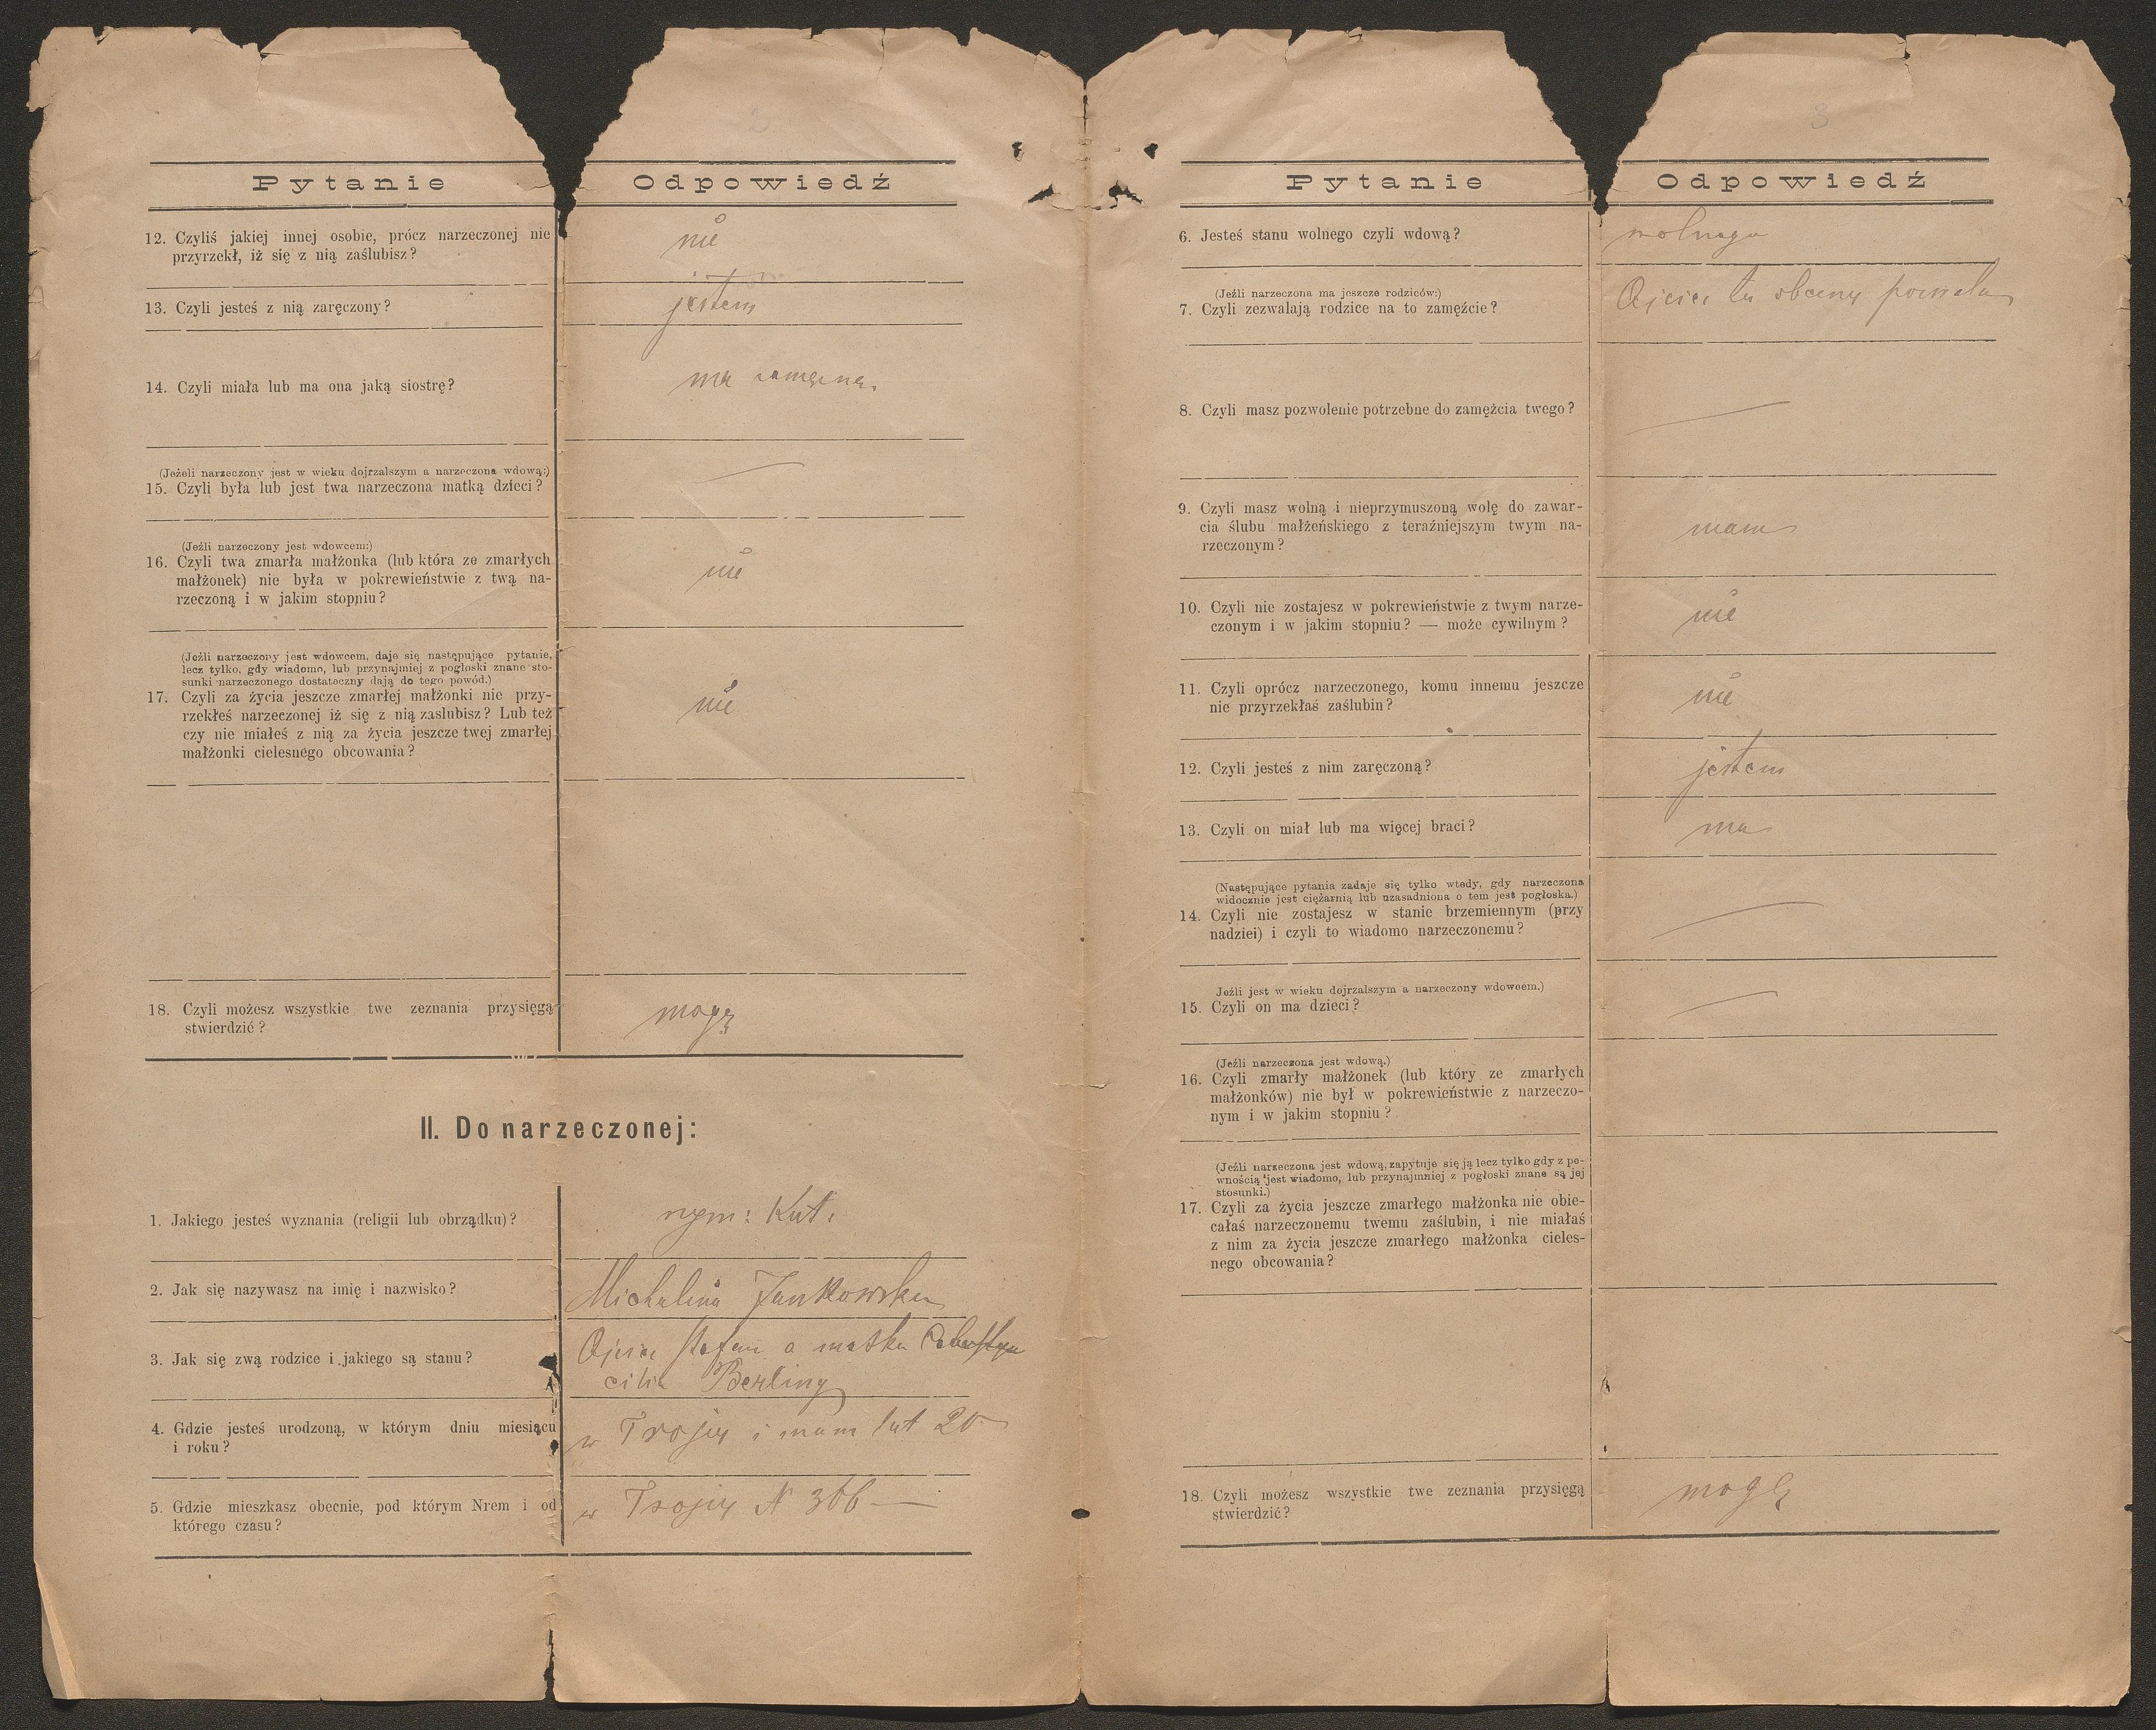 2
Pytanie
Odpowiedź
12. Czyliś jakiej innej osobie, prócz narzeczonej nie
przyrzekł, iż się z nią zaślubisz?
nie
13. Czyli jesteś z nią zaręczony?
jestem
14. Czyli miała lub ma ona jaką siostrę?
ma zamężną.
(Jeżeli narzeczony jest w wieku dojrzalszym a narzeczona wdową:)
15. Czyli była lub jest twa narzeczona matką dzieci?
(Jeźli narzeczony jest wdowcem:)
16. Czyli twa zmarła małżonka (lub która ze zmarłych
małżonek) nie była w pokrewieństwie z twą na-
rzeczoną i w jakim stopniu?
nie
(Jeźli narzeczony jest wdowcem, daje się następujące pytanie,
lecz tylko, gdy wiadomo, lub przynajmiej z pogłoski znane sto-
sunki narzeczonego dostateczny dają do tego powód.)
17. Czyli za życia jeszcze zmarłej małżonki nie przy-
rzekłeś narzeczonej iż się z nią zaslubisz? Lub też
czy nie miałeś z nią za życia jeszcze twej zmarłej
małżonki cielesnego obcowania?
nie
18. Czyli możesz wszystkie twe zeznania przysięgą
stwierdzić?
mogę
II. Do narzeczonej:
1. Jakiego jesteś wyznania (religii lub obrządku)?
rzym: Kat.
2. Jak się nazywasz na imię i nazwisko?
Michalina Jankowska
3. Jak się zwą rodzice i jakiego są stanu?
Ojciec Stefan a matka
cilia Berling
4. Gdzie jesteś urodzoną, w którym dniu miesiącu
i roku?
w Trojcy i mam lat 20
5. Gdzie mieszkasz obecnie, pod którym Nrem i od
którego czasu?
w Trojcy N 366 —
3
Pytanie
Odpowiedź
6. Jesteś stanu wolnego czyli wdową?
wolnego
(Jeźli narzeczona ma jeszcze rodziców:)
7. Czyli zezwalają rodzice na to zamęźcie?
Ojciec tu obecny pozwala
8. Czyli masz pozwolenie potrzebne do zamężcia twego?
9. Czyli masz wolną i nieprzymuszoną wolę do zawar-
cia ślubu małżeńskiego z teraźniejszym twym na-
rzeczonym?
mam
10. Czyli nie zostajesz w pokrewieństwie z twym narze-
czonym i w jakim stopniu? — może cywilnym?
nie
11. Czyli oprócz narzeczonego, komu innemu jeszcze
nie przyrzekłaś zaślubin?
nie
12. Czyli jesteś z nim zaręczoną?
jestem
13. Czyli on miał lub ma więcej braci?
ma
(Następujące pytania zadaje się tylko wtedy, gdy narzeczona
widocznie jest ciężarnią lub uzasadniona o tem jest pogłoska.)
14. Czyli nie zostajesz w stanie brzemiennym (przy
nadziei) i czyli to wiadomo narzeczonemu?
Jeźli jest w wieku dojrzalszym a narzeczony wdowcem.)
15. Czyli on ma dzieci?
(Jeźli narzeczona jest wdową.)
16. Czyli zmarły małżonek (lub który ze zmarłych
małżonków) nie był w pokrewieństwie z narzeczo-
nym i w jakim stopniu?
(Jeźli narzeczona jest wdową, zapytuje się ją lecz tylko gdy z pe-
wnością jest wiadomo, lub przynajmniej z pogłoski znane są jej
stosunki.)
17. Czyli za życia jeszcze zmarłego małżonka nie obie-
całaś narzeczonemu twemu zaślubin, i nie miałaś
z nim za życia jeszcze zmarłego małżonka cieles-
nego obcowania?
18. Czyli możesz wszystkie twe zeznania przysięgą
stwierdzić?
mogę